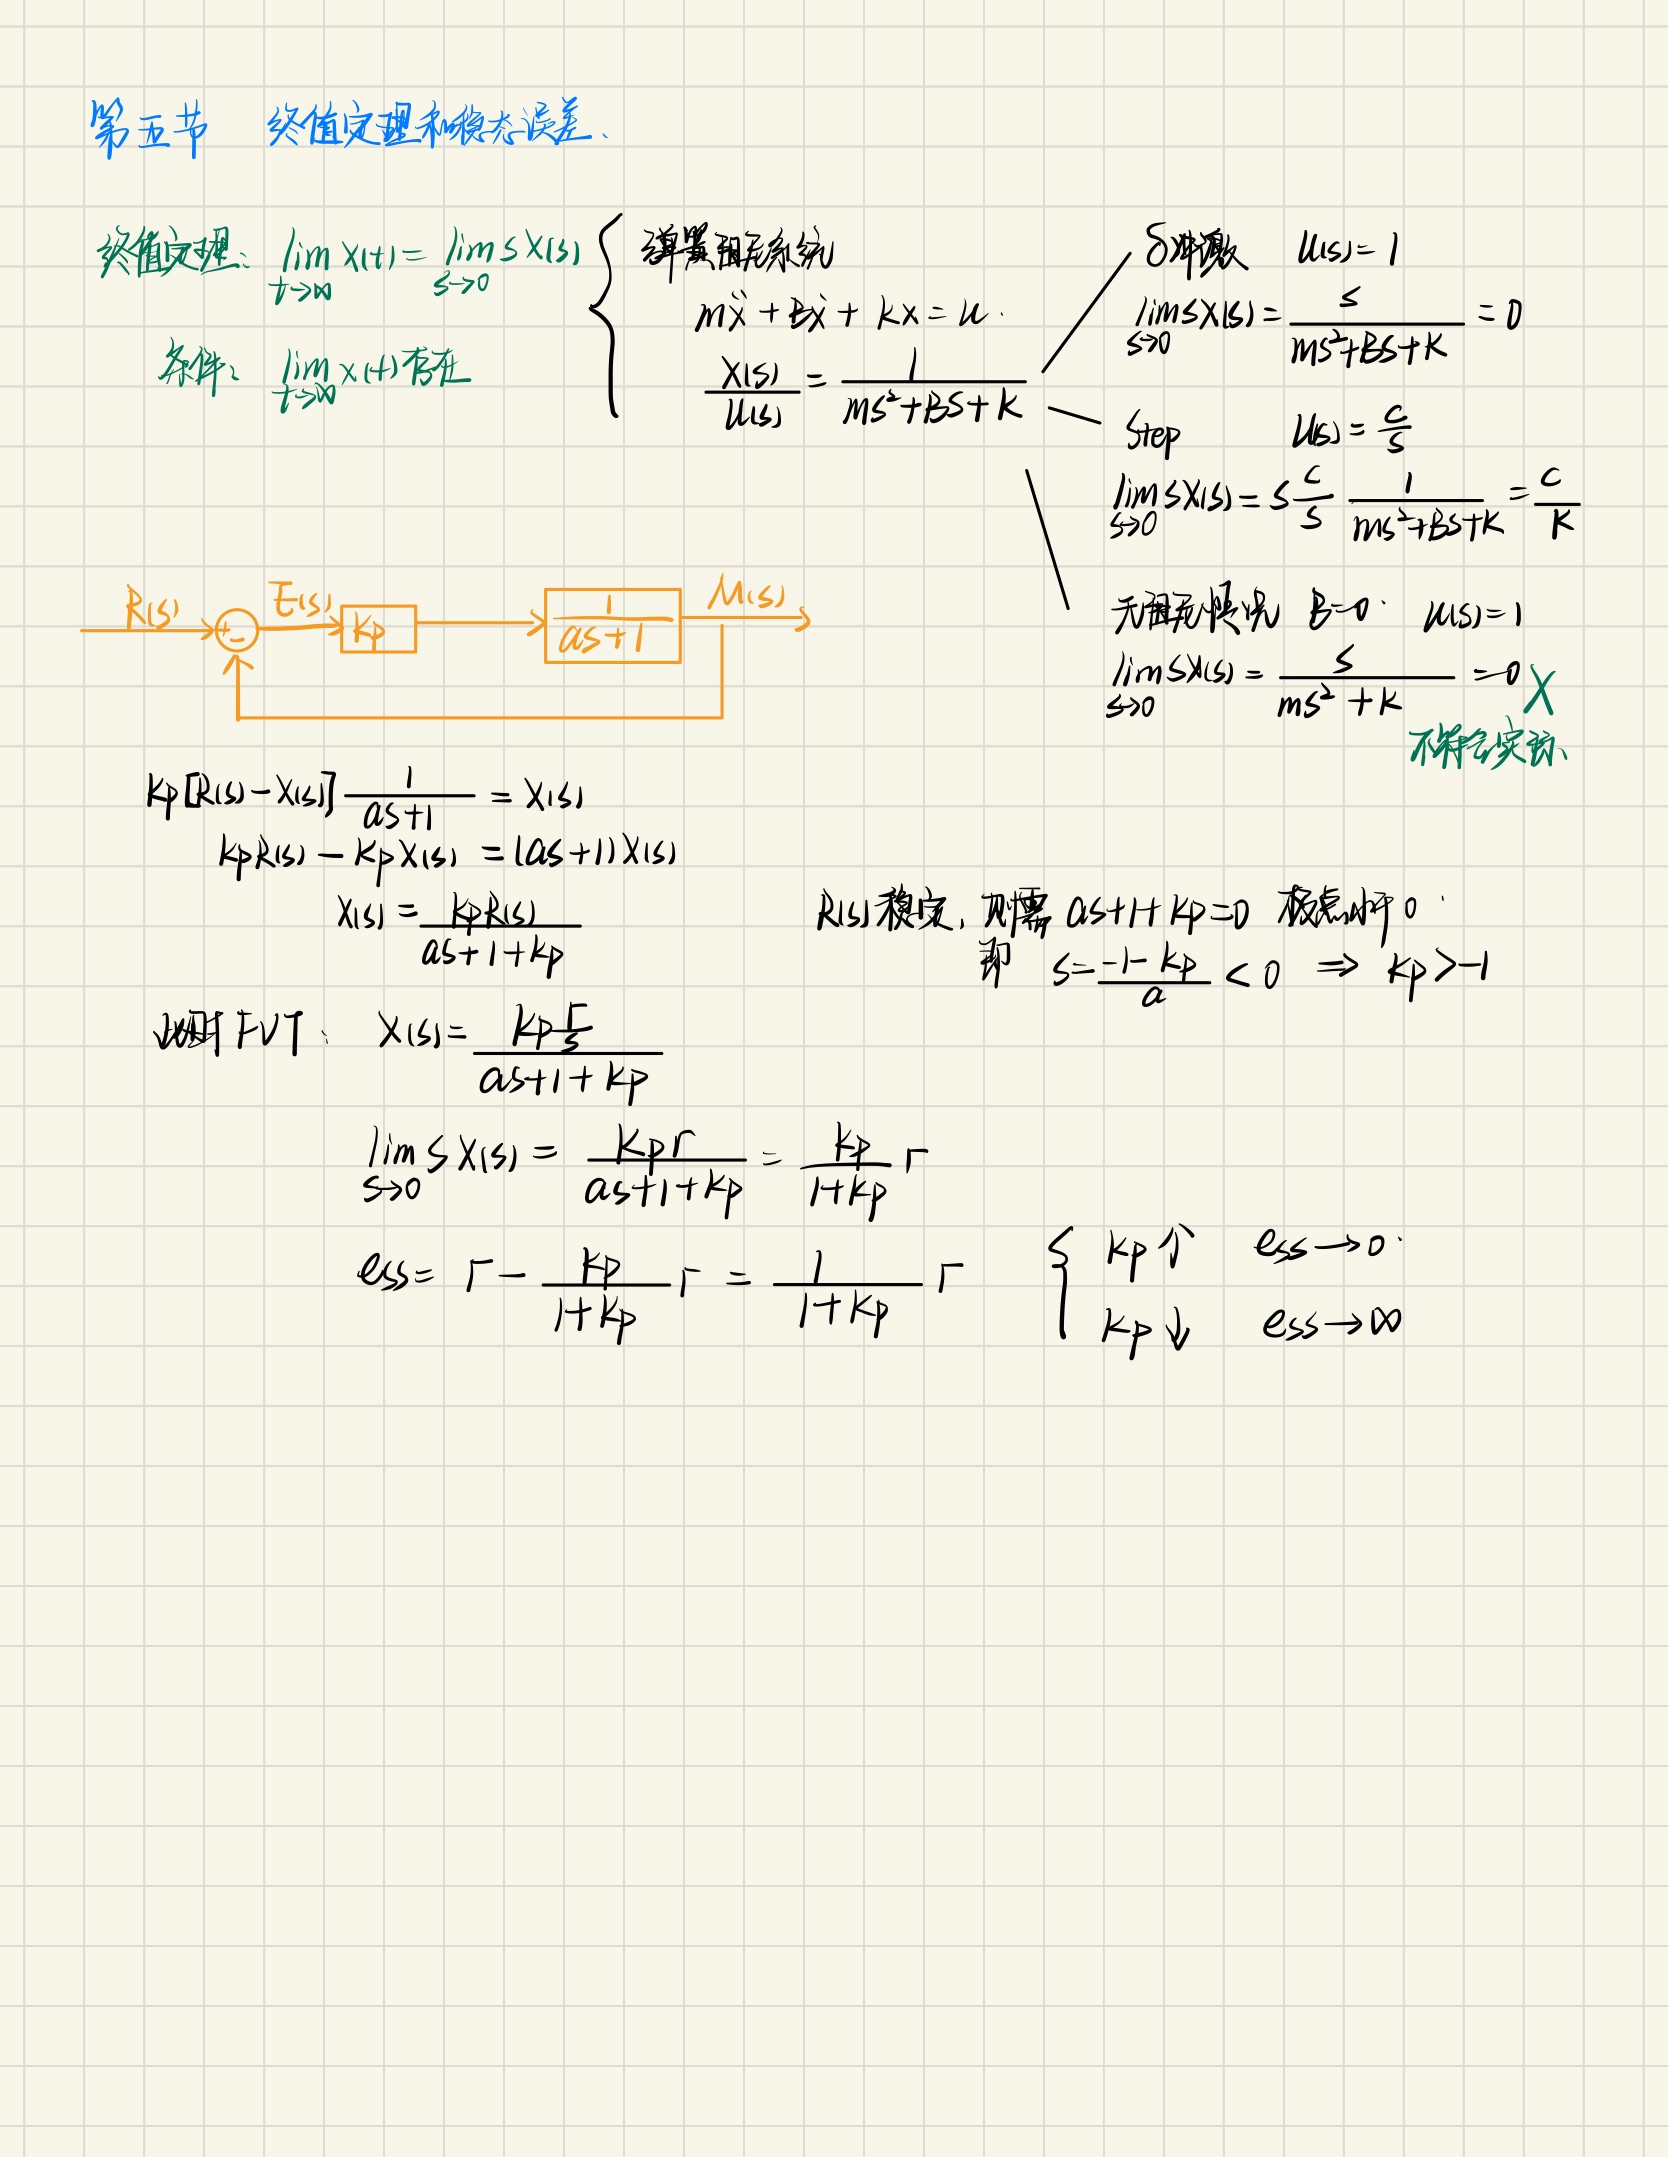 第五节 终值定理和稳态误差.
终值定理: lim_{t→∞} x(t) = lim_{s→0} sX(s)
条件: lim_{t→∞} x(t) 存在
弹簧阻尼系统
mẍ + Bẋ + kx = u.
X(s)/U(s) = 1/(ms²+Bs+k)
δ冲激 U(s) = 1
lim_{s→0} sX(s) = s/(ms²+Bs+k) = 0
Step U(s) = c/s
lim_{s→0} sX(s) = s c/s 1/(ms²+Bs+k) = c/k
无阻尼情况 B=0. U(s) = 1
lim_{s→0} sX(s) = s/(ms²+k) = 0 X
不符合实际.
R(s) + - E(s) kp 1/(as+1) M(s)
kp[R(s)-X(s)] 1/(as+1) = X(s)
kpR(s) - kpX(s) = (as+1)X(s)
X(s) = kpR(s)/(as+1+kp)
R(s)稳定, 则需 as+1+kp=0 极点小于0.
即 s = (-1-kp)/a < 0 ⇒ kp > -1
此时FVT: X(s) = (kp r/s)/(as+1+kp)
lim_{s→0} sX(s) = kp r/(as+1+kp) = kp/(1+kp) r
ess = r - kp/(1+kp) r = 1/(1+kp) r
kp↑ ess→0.
kp↓ ess→∞